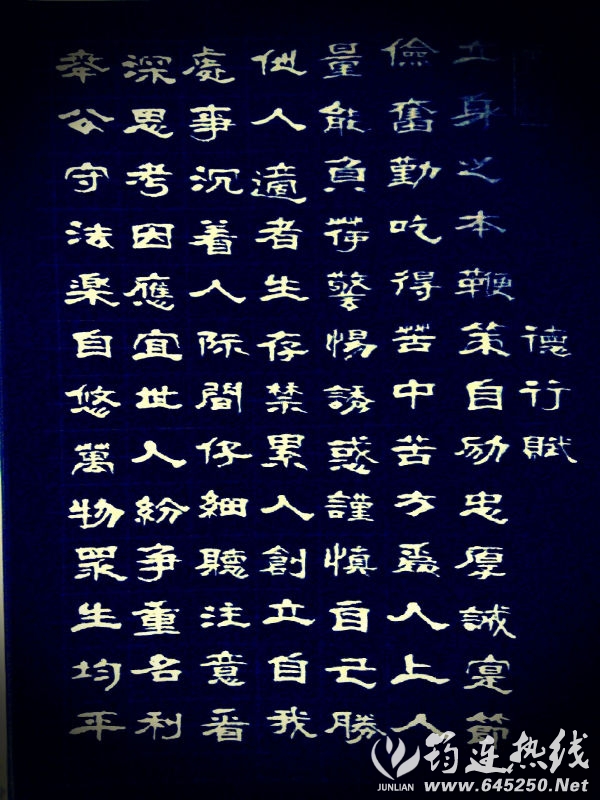 德行賦
立身之本鞭策自励忠厚誠寔節
儉奮勤吃得苦中苦方爲人上人
量能負荷警惕誘惑謹慎自己勝
他人適者生存禁累人創立自我
處事沉着人际間仔細聽注意看
深思考因應宜世人紛争重名利
奉公守法楽自悠萬物眾生均平
筠连热线
JUNLIAN
www.645250.Net